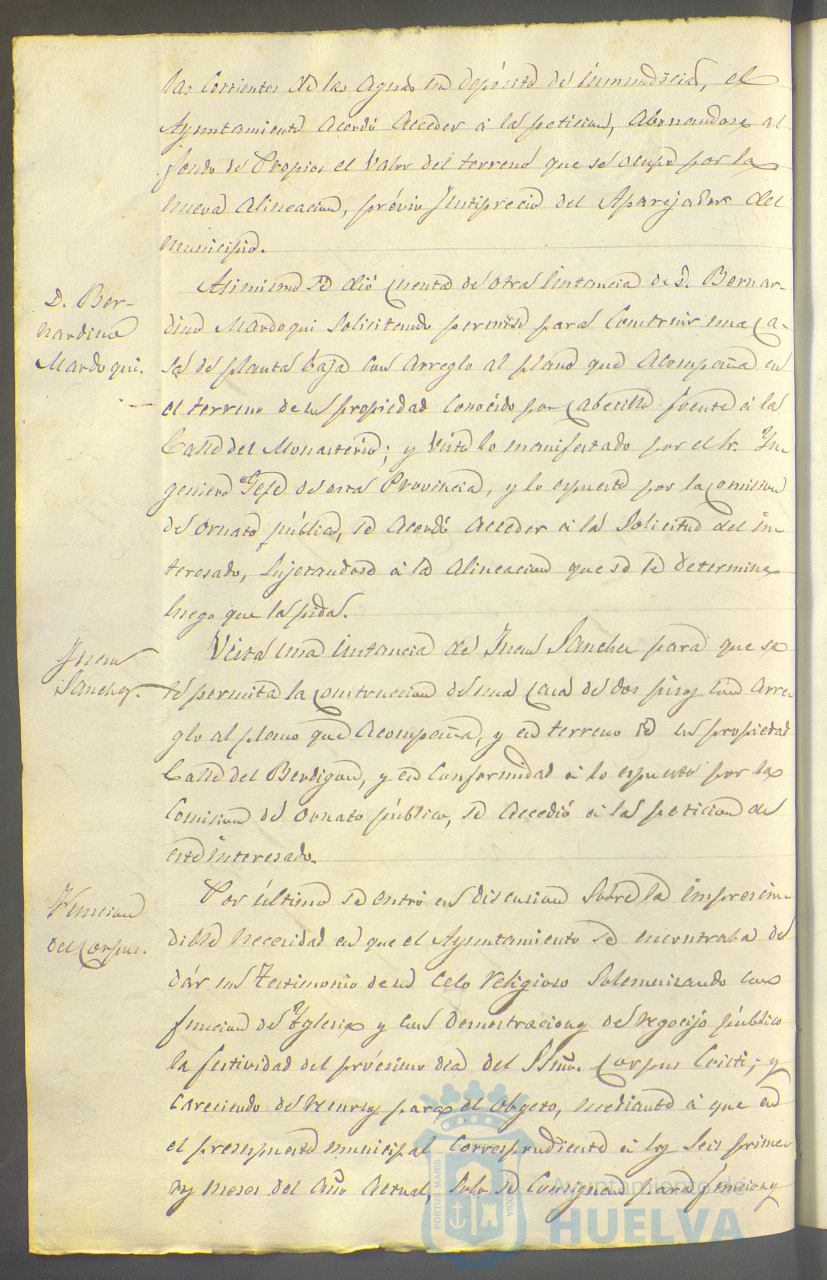 las corrientes de las aguas en depósito de inmundicias, el
Ayuntamiento acordó acceder á la peticion, abonandose al
fondo de Propios el valor del terreno que se ocupe por la
nueva alineacion, prévio justiprecio del Aparejador del
municipio.
D. Ber-
nardino
Mardoqui.
Asimismo se dió cuenta de otra instancia de D. Bernar-
dino Mardoqui solicitando permiso para construir una ca-
sa de planta baja con arreglo al plano que acompaña en
el terreno de su propiedad conocido por Cabecillo frente á la
Calle del Monasterio; y visto lo manifestado por el Sr. In-
geniero Jefe de esta Provincia, y lo espuesto por la comision
de ornato público, se acordó acceder á la solicitud del in-
teresado, sujetandose á la alineacion que se le determine
luego que la pida.
Juan
Sanchez.
Vista una instancia de Juan Sanchez para que se
le permita la construccion de una casa de dos pisos con arre-
glo al plano que acompaña, y en terreno de su propiedad
Calle del Berdigon, y en conformidad á lo espuesto por la
Comision de ornato público, se accedió á la peticion de
este interesado.
Funcion
del Corpus.
Por último se entró en discusion sobre la imprescin-
dible necesidad en que el Ayuntamiento se encontraba de
dár un testimonio de su celo religioso solemnisando con
funcion de Yglesia y con demostraciones de regocijo público
la festividad del procsimo dia del Ssmo. Corpus Cristi; y
careciendo de fondos para el obgeto, mediante á que en
el presupuesto municipal correspondiente á los seis prime-
ros meses del año actual, solo se consignan para funciones
PORTUS MARIS
Ayuntamiento de
HUELVA